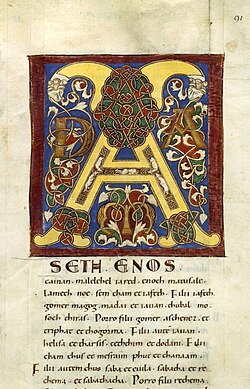 91
A
SETH. ENOS
cainan. malelehel iared. enoch matusale.
Lamech noe. sem cham et iafeth. Filii iafeth
gomer magog. madai et iauan. thubal mo
soch thiras. Porro filii gomer. aschenez. et
et thogorma. Filii aute iauan.
helisa et tharsis. cethim et dodani. Filii
cham chus et mesraim phut et chanaam.
Filii autem chus saba et euila. sabatha et re
chema. et sabathacha. Porro filii rechema.